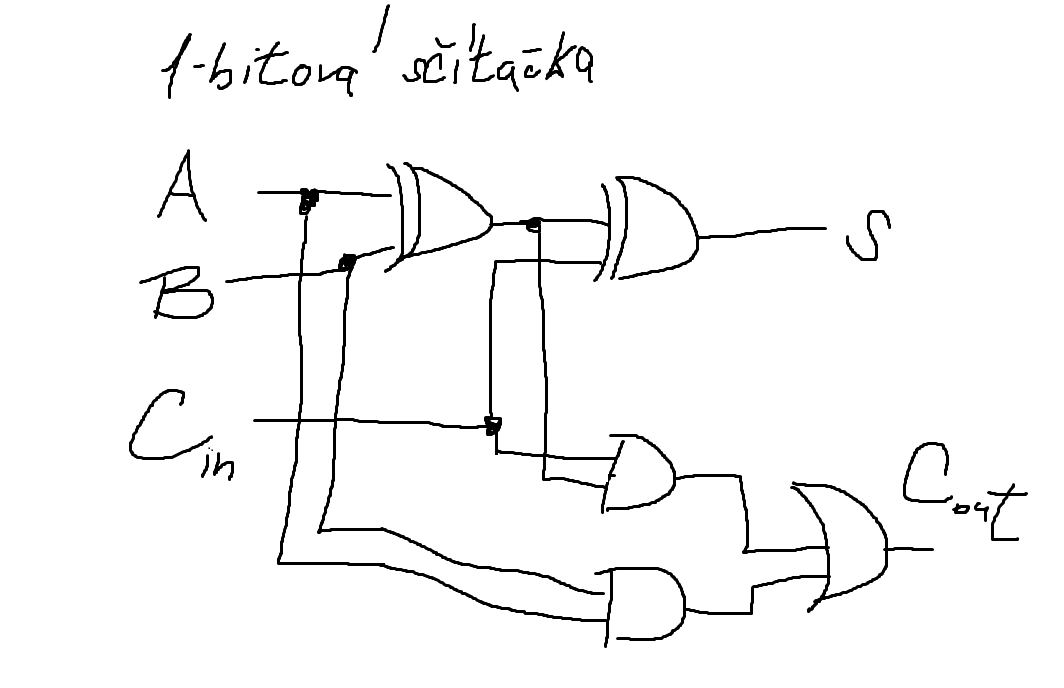 1-bitová sčítačka
A
B
S
C in
C out